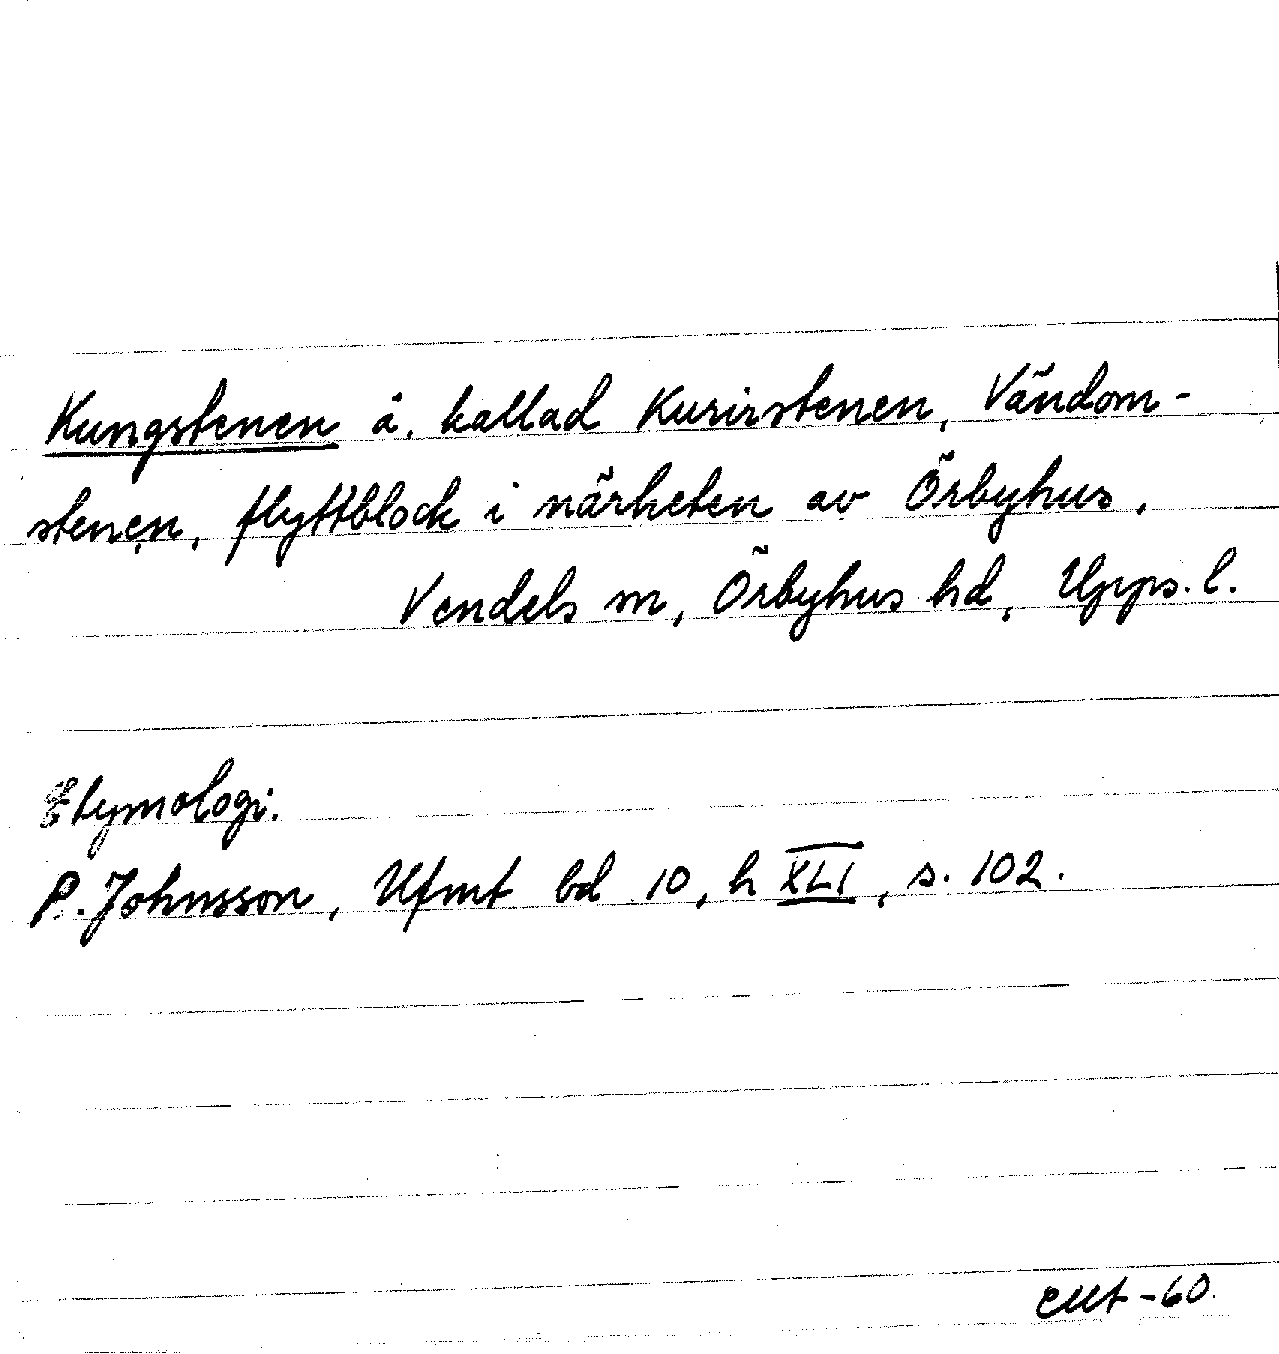 Kungstenen ä. kallad Kurirstenen, Vändom-
stenen, flyttblock i närheten av Örbyhus.
Vendels sn, Örbyhus hd, Upps. l.
Etymologi.
P. Johnsson, Ufmt bd 10, h XLI, s. 102.
-60.